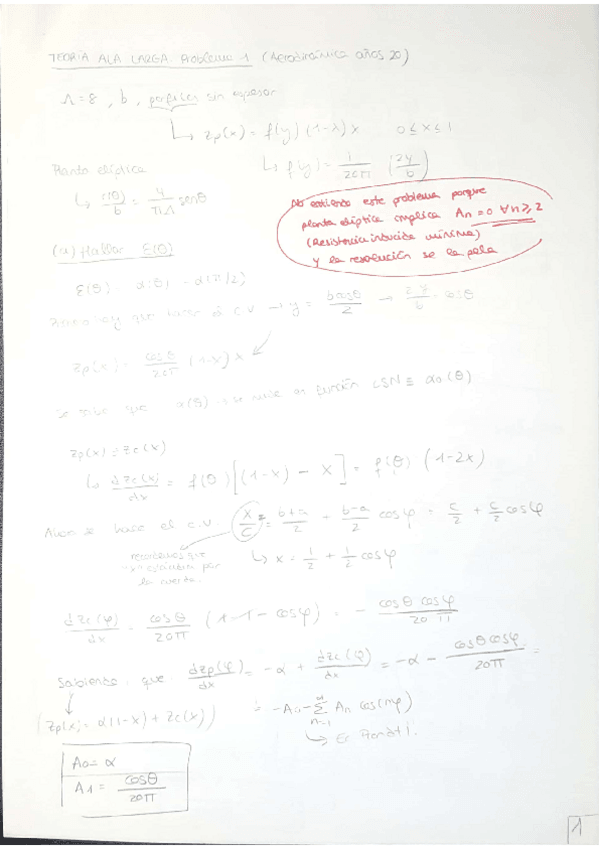 TEORÍA ALA LARGA. Problema 1 (Aerodinámica años 20)
Λ=8, b, perfiles sin espesor
↳ zp(x) = f(y) (1-x) x 0 ≤ x ≤ 1
Planta elíptica
↳ f(y) = 1/20π (2y/b)
↳ c(θ)/b = 4/πΛ senθ
No entiendo este problema porque
planta elíptica implica An = 0 ∀n≥2
(Resistencia inducida mínima)
y la resolución se la pela
(a) Hallar ε(θ)
ε(θ) = α(θ) - α(π/2)
hay que hacer el c.v → y = b cosθ/2 → 2y/b = cosθ
zp(x) = cosθ/20π (1-x) x
Se sabe que α(θ) → se mide en función LSN ≡ α0(θ)
zp(x) = zc(x)
↳ dzc(x)/dx = f(θ) [(1-x) - x] = f(θ) (1-2x)
Ahora se hace el c.v. x/c = b+a/2 + b-a/2 cosφ = c/2 + c/2 cosφ
recordemos que
"x" está por
la cuerda.
↳ x = 1/2 + 1/2 cosφ
dzc(φ)/dx = cosθ/20π (1-1-cosφ) = - cosθ cosφ/20π
Sabiendo que dzp(φ)/dx = -α + dzc(φ)/dx = -α - cosθcosφ/20π =
(zp(x) = α(1-x) + zc(x))
= -A0 - ∞Σn=1 An cos(nφ)
A0 = α
A1 = cosθ/20π
1